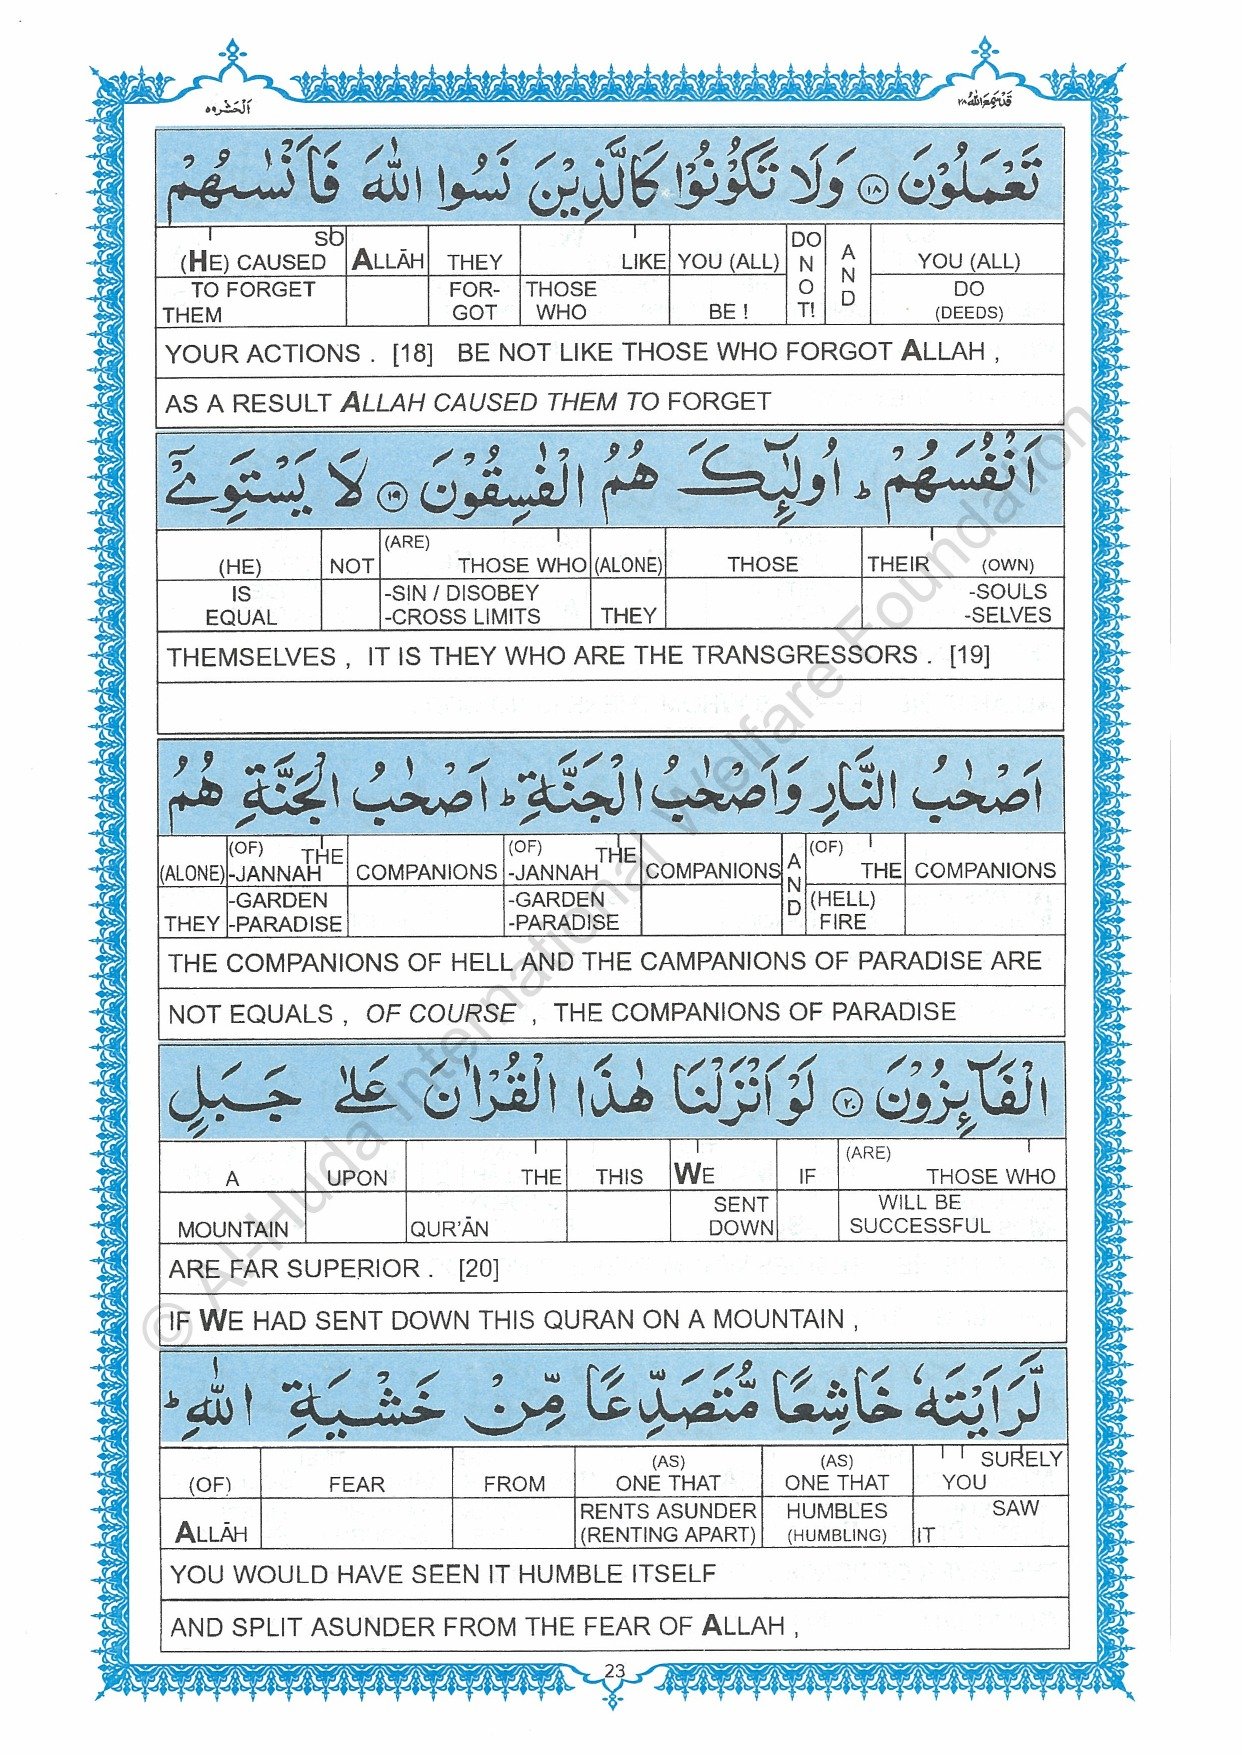 قَدْ سَمِعَ اللّٰهُ ٢٨
اَلْحَشْر ٥٩
تَعْمَلُوْنَ ١٨ وَلَا تَكُوْنُوْا كَالَّذِيْنَ نَسُوا اللّٰهَ فَاَنْسٰىهُمْ
(HE) CAUSED SO ALLĀH THEY LIKE YOU (ALL) DO NOT! AND YOU (ALL)
TO FORGET THEM FOR-GOT THOSE WHO BE ! DO (DEEDS)
YOUR ACTIONS . [18] BE NOT LIKE THOSE WHO FORGOT ALLAH ,
AS A RESULT ALLAH CAUSED THEM TO FORGET
اَنْفُسَهُمْ ؕ اُولٰٓئِكَ هُمُ الْفٰسِقُوْنَ ١٩ لَا يَسْتَوِيْٓ
(HE) NOT (ARE) THOSE WHO (ALONE) THOSE THEIR (OWN)
IS EQUAL -SIN / DISOBEY -CROSS LIMITS THEY -SOULS -SELVES
THEMSELVES , IT IS THEY WHO ARE THE TRANSGRESSORS . [19]
اَصْحٰبُ النَّارِ وَاَصْحٰبُ الْجَنَّةِ ؕ اَصْحٰبُ الْجَنَّةِ هُمُ
(ALONE) (OF) THE -JANNAH COMPANIONS (OF) THE -JANNAH COMPANIONS AND (OF) THE COMPANIONS
THEY -GARDEN -PARADISE -GARDEN -PARADISE (HELL) FIRE
THE COMPANIONS OF HELL AND THE CAMPANIONS OF PARADISE ARE
NOT EQUALS , OF COURSE , THE COMPANIONS OF PARADISE
الْفَآئِزُوْنَ ٢٠ لَوْ اَنْزَلْنَا هٰذَا الْقُرْاٰنَ عَلٰى جَبَلٍ
A UPON THE THIS WE IF (ARE) THOSE WHO
MOUNTAIN QUR'ĀN SENT DOWN WILL BE SUCCESSFUL
ARE FAR SUPERIOR . [20]
IF WE HAD SENT DOWN THIS QURAN ON A MOUNTAIN ,
لَّرَاَيْتَهٗ خَاشِعًا مُّتَصَدِّعًا مِّنْ خَشْيَةِ اللّٰهِ ؕ
(OF) FEAR FROM (AS) ONE THAT (AS) ONE THAT SURELY YOU
ALLĀH RENTS ASUNDER (RENTING APART) HUMBLES (HUMBLING) SAW IT
YOU WOULD HAVE SEEN IT HUMBLE ITSELF
AND SPLIT ASUNDER FROM THE FEAR OF ALLAH ,
23
© Al-Huda International Welfare Foundation